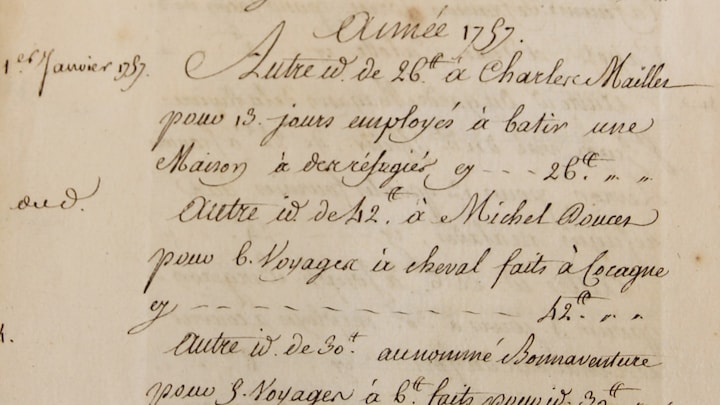 Année 1757.
1er Janvier 1757. Autre id. de 26.tt à Charles Maillet
pour 13. jours employés à batir une
Maison à des réfugiés cy - - - 26.tt „ „
dud. Autre id. de 42.tt à Michel Doucet
pour 6. Voyages à cheval faits à Cocagne
cy - - - - - - - - - - - - 42.tt „ „
Autre id. de 30.tt au nommé Bonnaventure
pour 5. Voyages à 6.tt faits pour id. 30.tt „ „